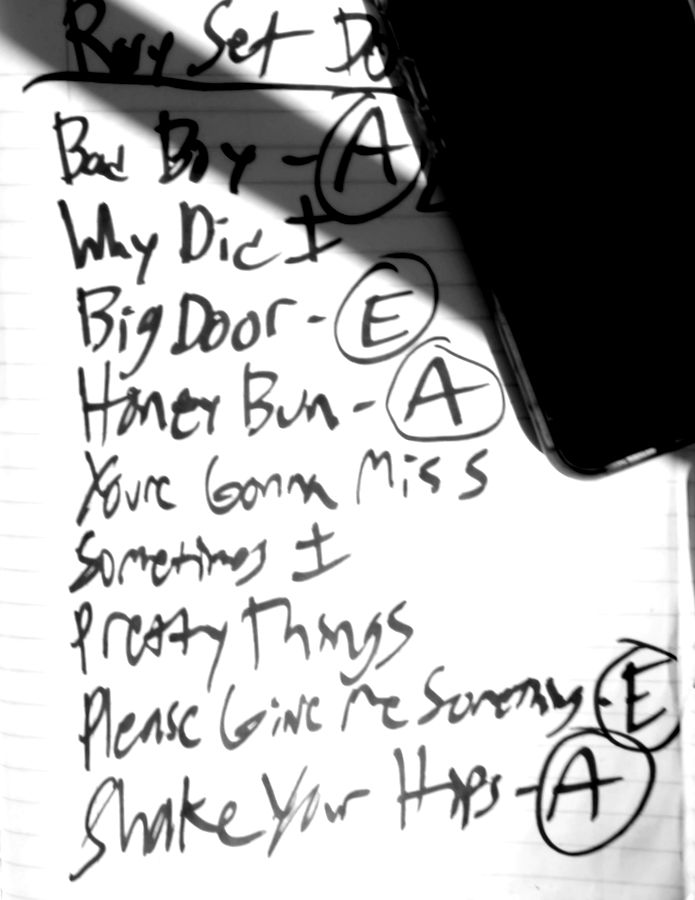 Rory Set
Bad Boy - A
Why Did I
Big Door - E
Honey Bun - A
Youre Gonna Miss
Sometimes I
Pretty Things
Please Give Me Something - E
Shake Your Hips - A